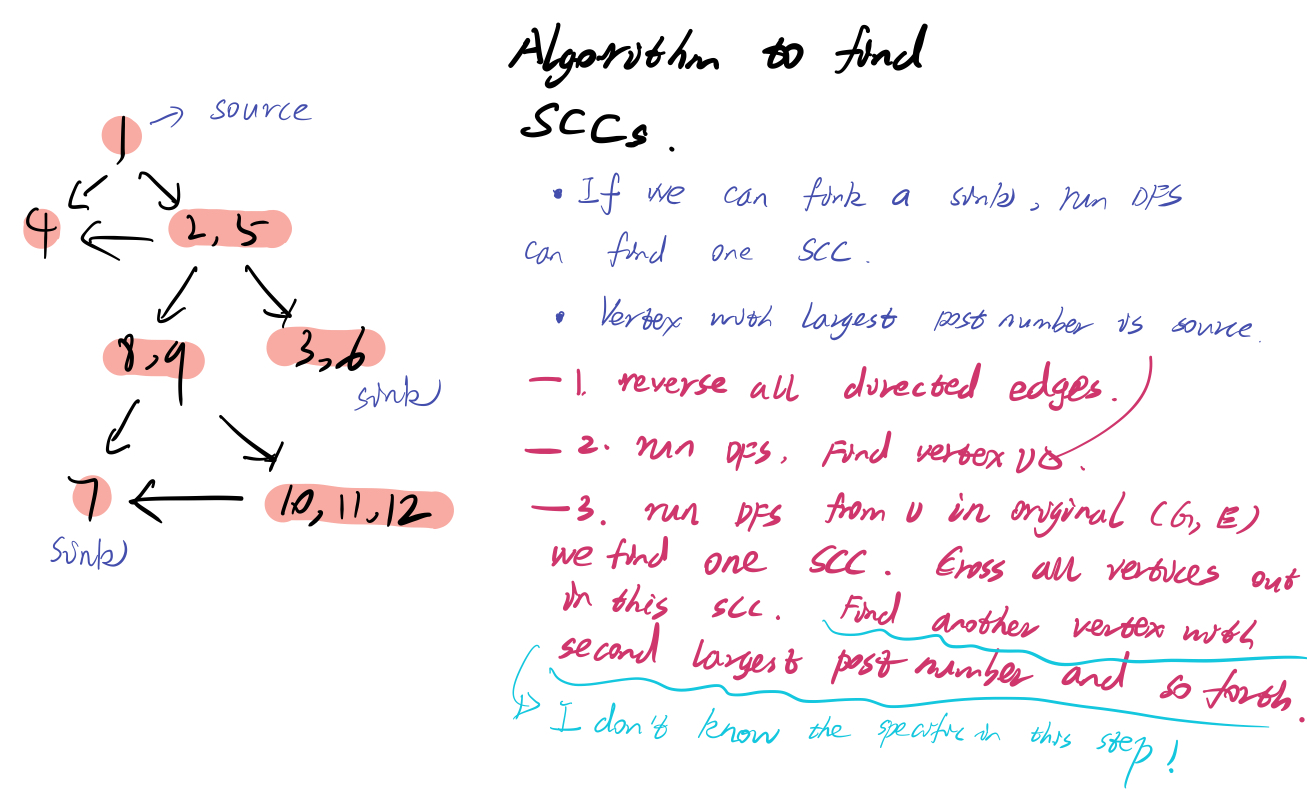 Algorithm to find
SCCs.
1 → source
4
2, 5
8, 9
3, 6
sink
7
10, 11, 12
sink
• If we can fink a sink, run DFS
can find one SCC.
• Vertex with largest post number is source.
— 1. reverse all directed edges.
— 2. run DFS. Find vertex U
— 3. run DFS from U in original (G, E)
we find one SCC. Cross all vertices out
in this SCC. Find another vertex with
second largest post number and so forth.
I don't know the specific in this step!